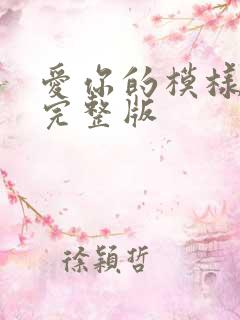 愛你的模樣
完整版
徐穎哲